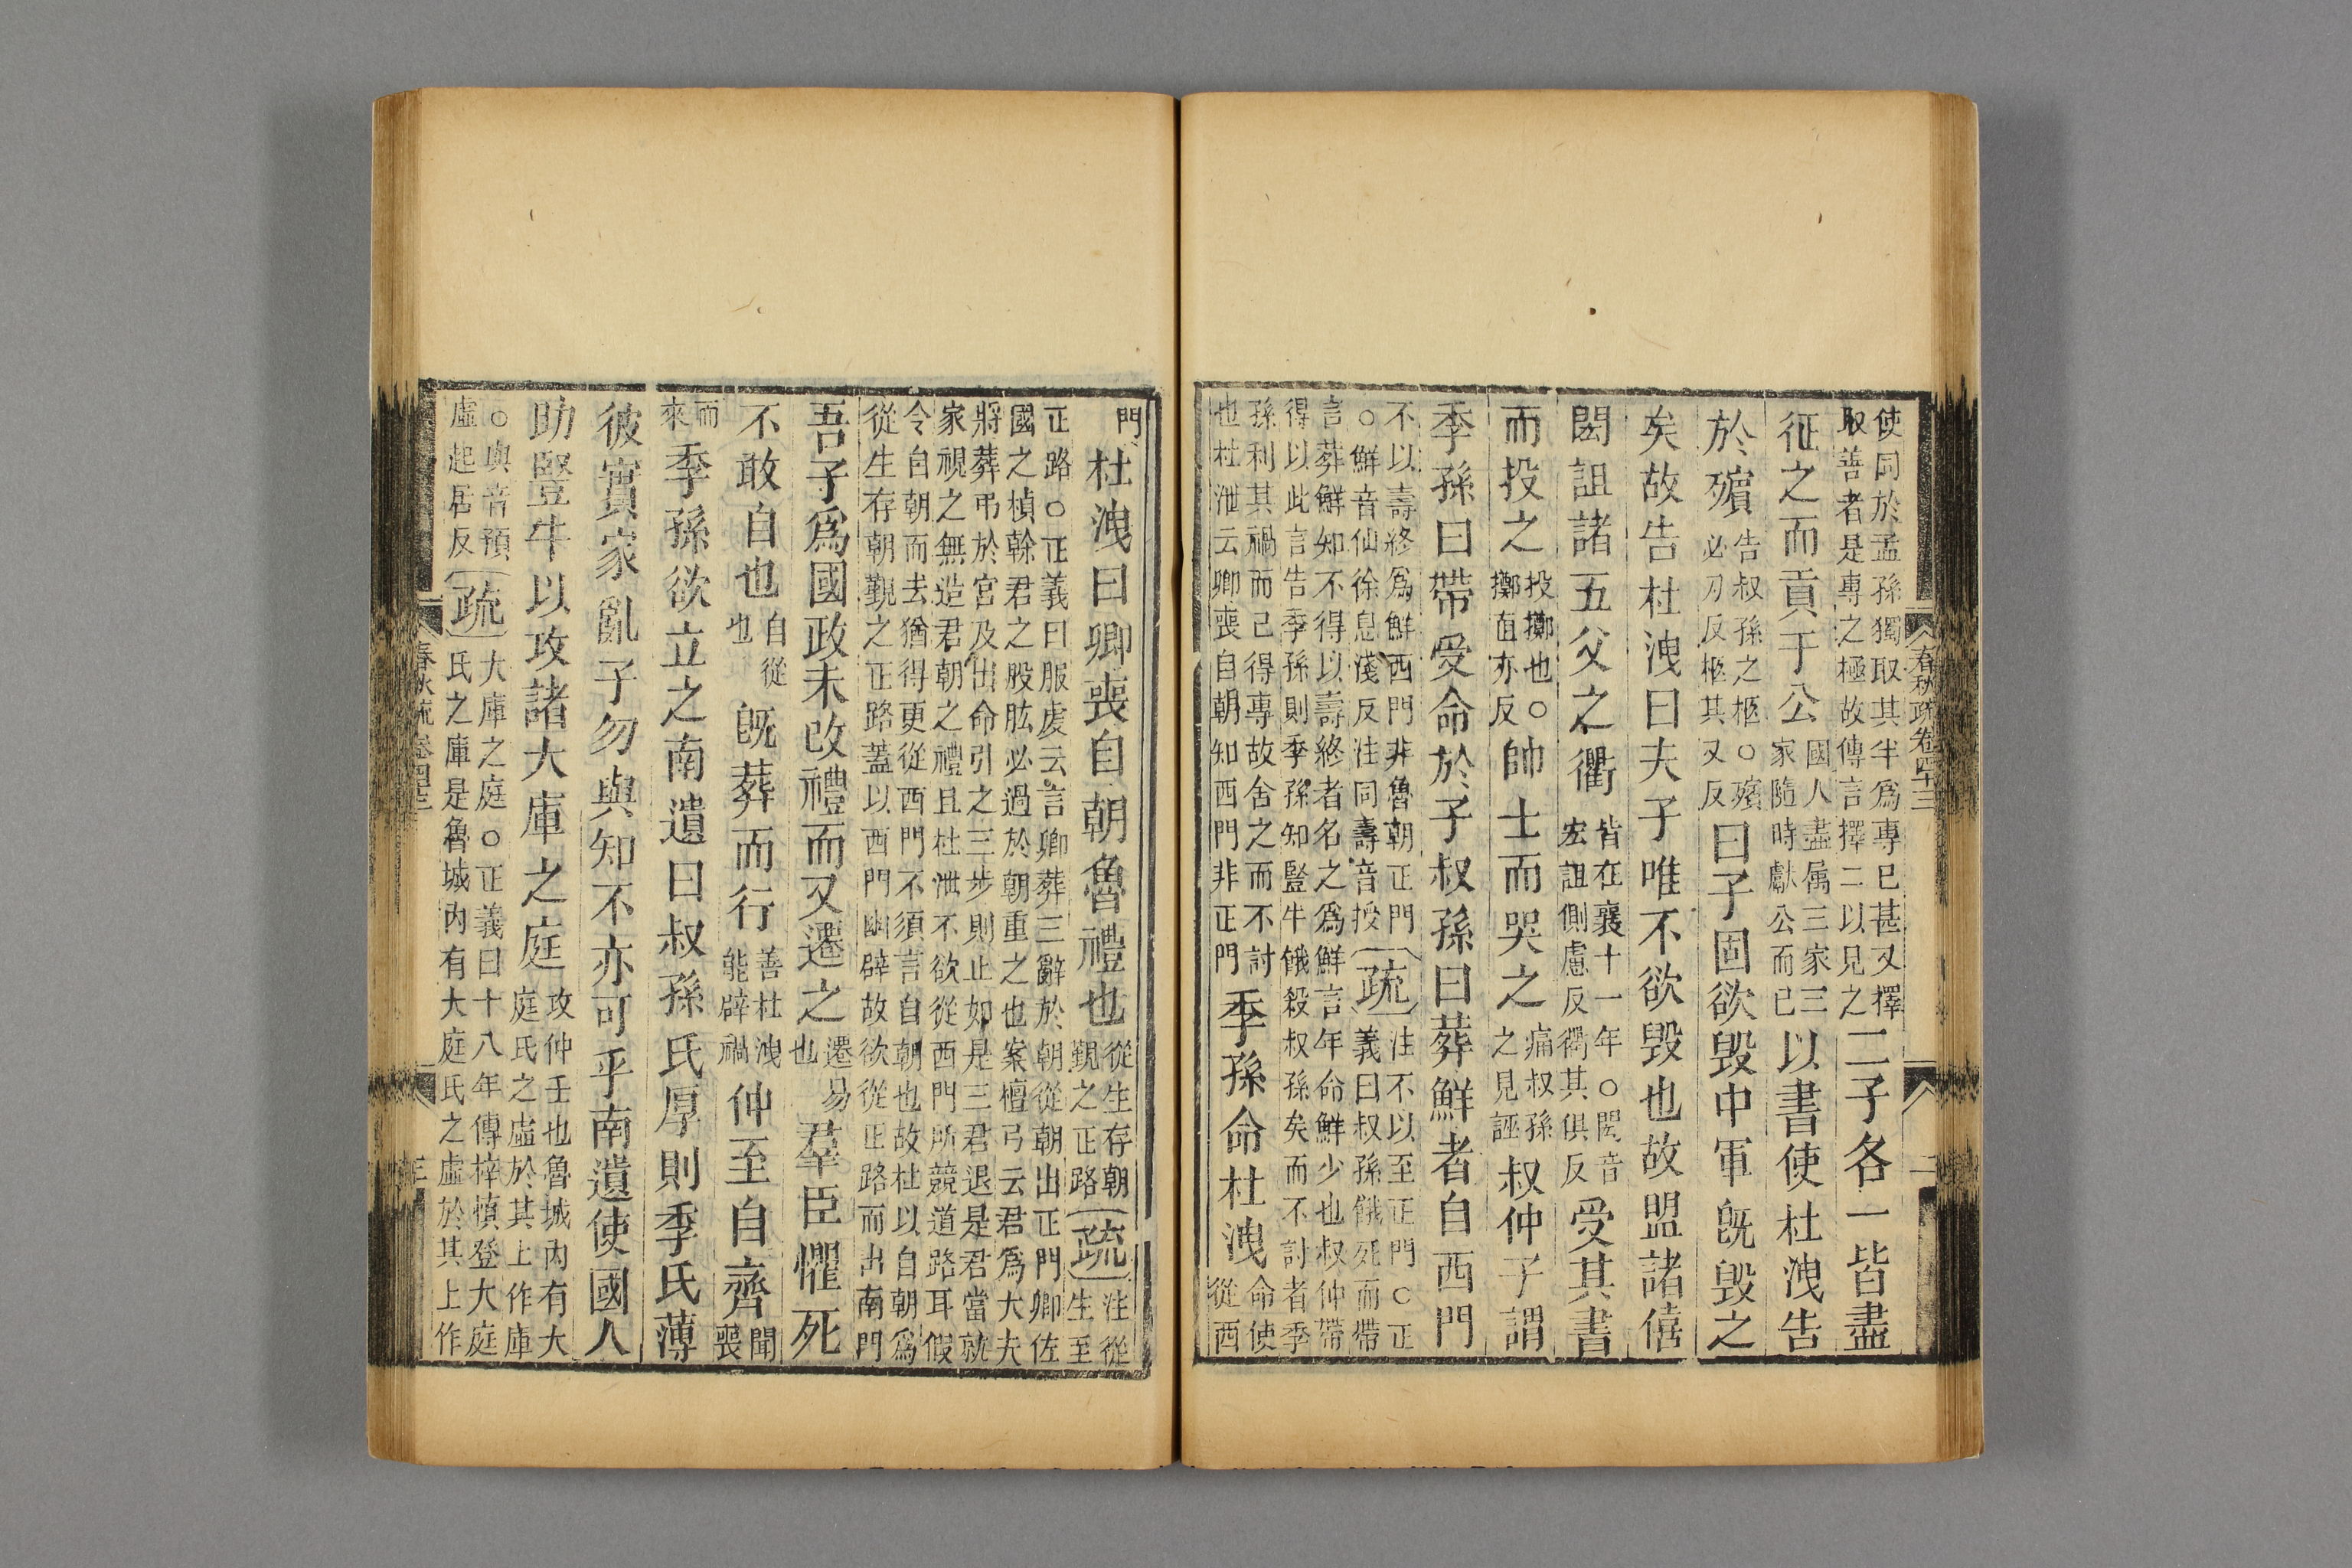 使同於孟孫獨取其半爲專已甚又擇
取善者是專之極故傳言擇二以見之二子各一皆盡
征之而貢于公國人盡属三家三家隨時獻公而已以書使杜洩告
於殯告叔孫之柩○殯必刃反柩其又反曰子固欲毁中軍旣毁之
矣故告杜洩曰夫子唯不欲毁也故盟諸僖
閎詛諸五父之衢皆在襄十一年○閎音宏詛側慮反衢其俱反受其書
而投之投擲也○擲直亦反帥士而哭之痛叔孫之見誣叔仲子謂
季孫曰帶受命於子叔孫曰葬鮮者自西門
不以壽終爲鮮西門非魯朝正門
○鮮音仙徐息淺反注同壽音授疏注不以至正門○正義曰叔孫餓死而帶
言葬鮮知不得以壽終者名之爲鮮言年命鮮少也叔仲帶
得以此言告季孫則季孫知豎牛餓殺叔孫矣而不討者季
孫利其禍而已得專故舍之而不討
也杜泄云卿喪自朝知西門非正門季孫命杜洩命使從西
門杜洩曰卿喪自朝魯禮也從生存朝覲之正路疏注從生至
正路○正義曰服虔云言卿葬三辭於朝從朝出正門卿佐
國之楨幹君之股肱必過於朝重之也案檀弓云君爲大夫
將葬弔於宮及出命引之三步則止如是三君退是君當就
家視之無造君朝之禮且杜泄不欲從西門所競道路耳假
令自朝而去猶得更從西門不須言自朝也故杜以自朝爲
從生存朝覲之正路蓋以西門幽辟故欲從正路而出南門
吾子爲國政未改禮而又遷之遷易也羣臣懼死
不敢自也自從也旣葬而行善杜洩能辟禍仲至自齊聞喪
而來季孫欲立之南遺曰叔孫氏厚則季氏薄
彼實家亂子勿與知不亦可乎南遺使國人
助豎牛以攻諸大庫之庭攻仲壬也魯城內有大庭氏之虛於其上作庫
○與音預虛起居反疏大庫之庭○正義曰十八年傳梓慎登大庭氏之庫是魯城內有大庭氏之虛於其上作
春秋疏卷四十三
二
春秋疏卷四十三
三